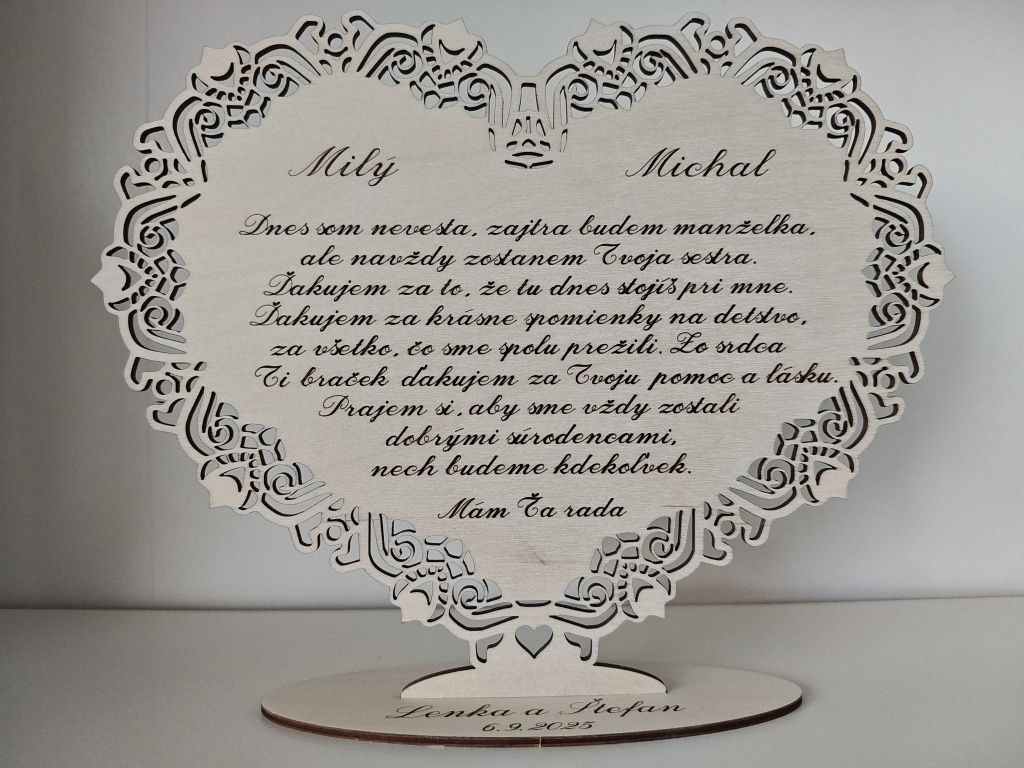 Milý Michal
Dnes som nevesta, zajtra budem manželka,
ale navždy zostanem Tvoja sestra.
Ďakujem za to, že tu dnes stojíš pri mne.
Ďakujem za krásne spomienky na detstvo,
za všetko, čo sme spolu prežili. Zo srdca
Ti braček ďakujem za Tvoju pomoc a lásku.
Prajem si, aby sme vždy zostali
dobrými súrodencami,
nech budeme kdekoľvek.
Mám Ťa rada
Lenka a Štefan
6.9.2025